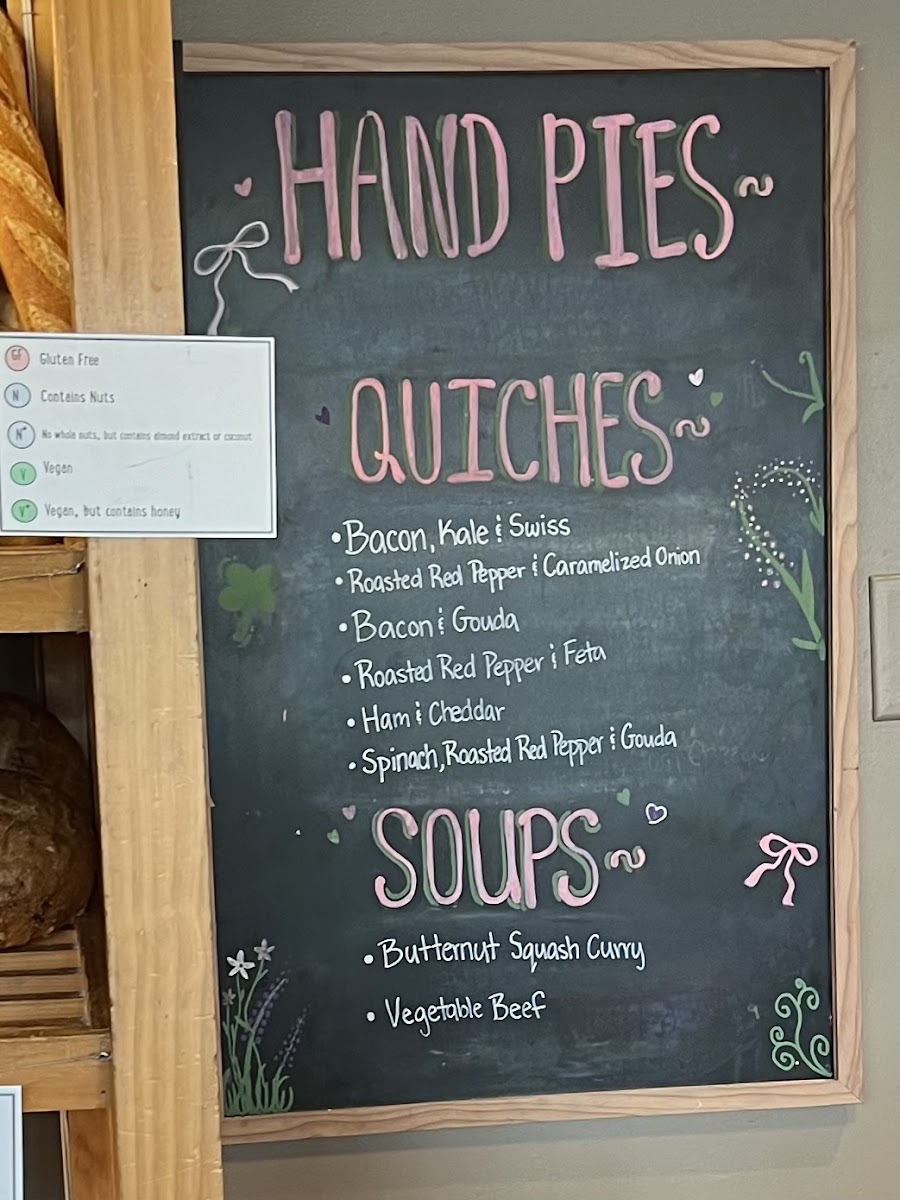 HAND PIES~
GF Gluten Free
N Contains Nuts
N* No whole nuts, but contains almond extract or coconut
V Vegan
V* Vegan, but contains honey
QUICHES~
• Bacon, Kale & Swiss
• Roasted Red Pepper & Caramelized Onion
• Bacon & Gouda
• Roasted Red Pepper & Feta
• Ham & Cheddar
• Spinach, Roasted Red Pepper & Gouda
SOUPS~
• Butternut Squash Curry
• Vegetable Beef